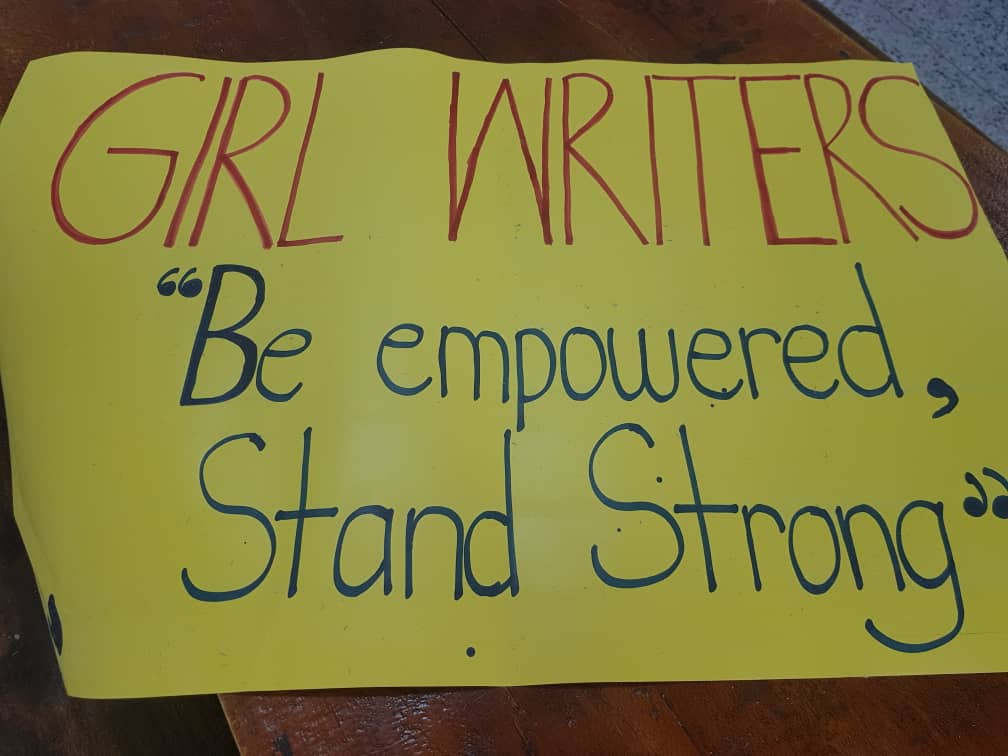 GIRL WRITERS
“Be empowered,
Stand Strong”